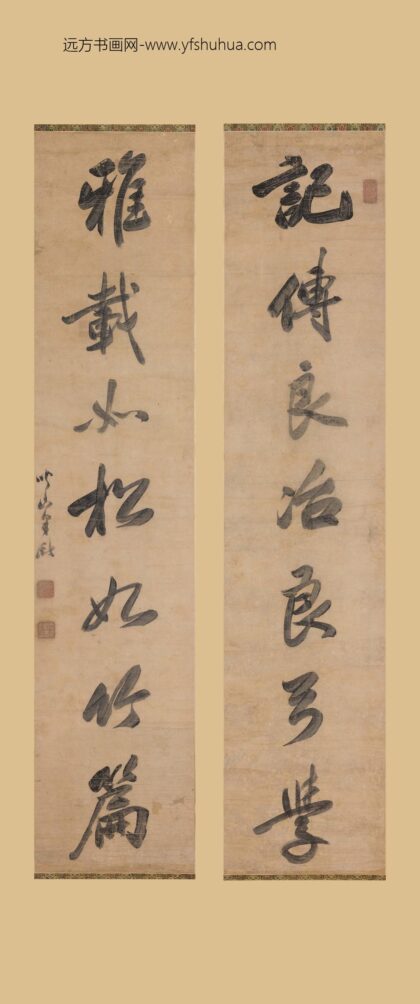 远方书画网-www.yfshuhua.com
記傳良冶良弓學
雅載如松如竹篇